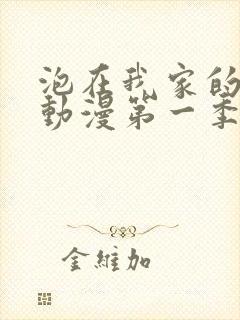 泡在我家的
動漫第一季
金維加